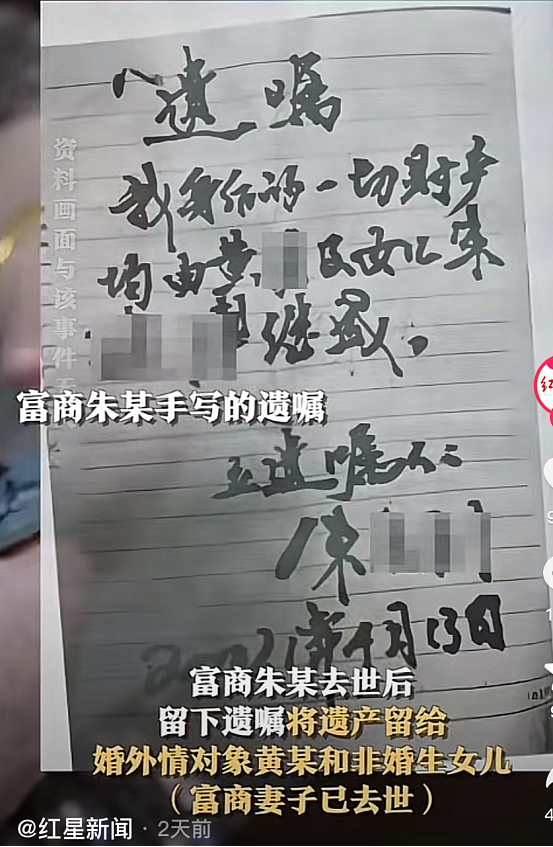 遗嘱
我身后的一切财产
均由黄 及女儿朱
继承。
立遗嘱人:
朱
2021年4月13日
资料画面与该事件无
富商朱某手写的遗嘱
富商朱某去世后
留下遗嘱将遗产留给
婚外情对象黄某和非婚生女儿
（富商妻子已去世）
@红星新闻 · 2天前
红